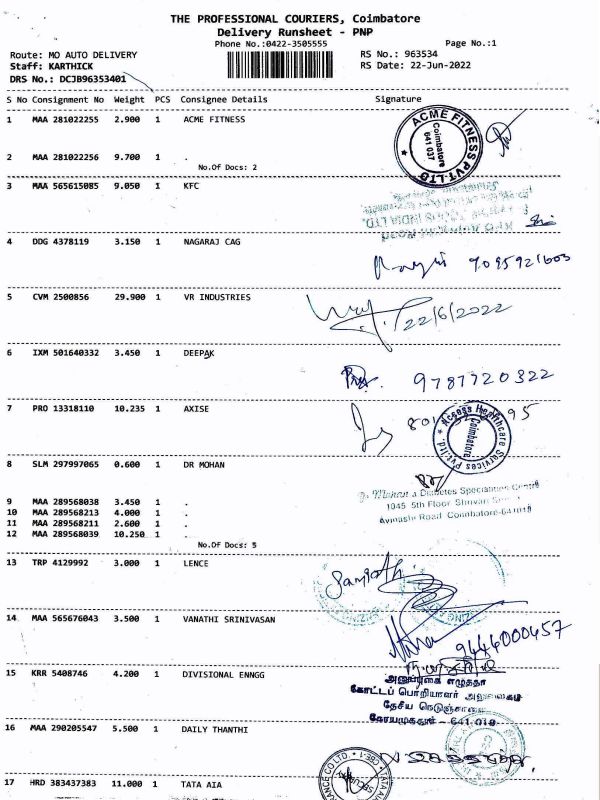 THE PROFESSIONAL COURIERS, Coimbatore
Delivery Runsheet - PNP
Phone No.:0422-3505555 Page No.:1
Route: MO AUTO DELIVERY RS No.: 963534
Staff: KARTHICK RS Date: 22-Jun-2022
DRS No.: DCJB96353401
S No Consignment No Weight PCS Consignee Details Signature
1 MAA 281022255 2.900 1 ACME FITNESS
ACME FITNESS PVT.LTD
Coimbatore
641 037
2 MAA 281022256 9.700 1 .
No.Of Docs: 2
3 MAA 565615085 9.050 1 KFC
4 DDG 4378119 3.150 1 NAGARAJ CAG
5 CVM 2500856 29.900 1 VR INDUSTRIES
22/6/2022
6 IXM 501640332 3.450 1 DEEPAK
9787720322
7 PRO 13318110 10.235 1 AXISE
Access Healthcare Services Pvt.Ltd.
Coimbatore
8 SLM 297997065 0.600 1 DR MOHAN
Dr Mohan's Diabetes Specialities Centre
1045 5th Floor
Avinashi Road Coimbatore-641018
9 MAA 289568038 3.450 1 .
10 MAA 289568213 4.000 1 .
11 MAA 289568211 2.600 1 .
12 MAA 289568039 10.250 1 .
No.Of Docs: 5
13 TRP 4129992 3.000 1 LENCE
14 MAA 565676043 3.500 1 VANATHI SRINIVASAN
9444000457
15 KRR 5408746 4.200 1 DIVISIONAL ENNGG
கோட்டப் பொறியாளர் அலுவலகம்
தேசிய நெடுஞ்சாலை
கோயமுத்தூர் - 641 018
16 MAA 290205547 5.500 1 DAILY THANTHI
17 HRD 383437383 11.000 1 TATA AIA